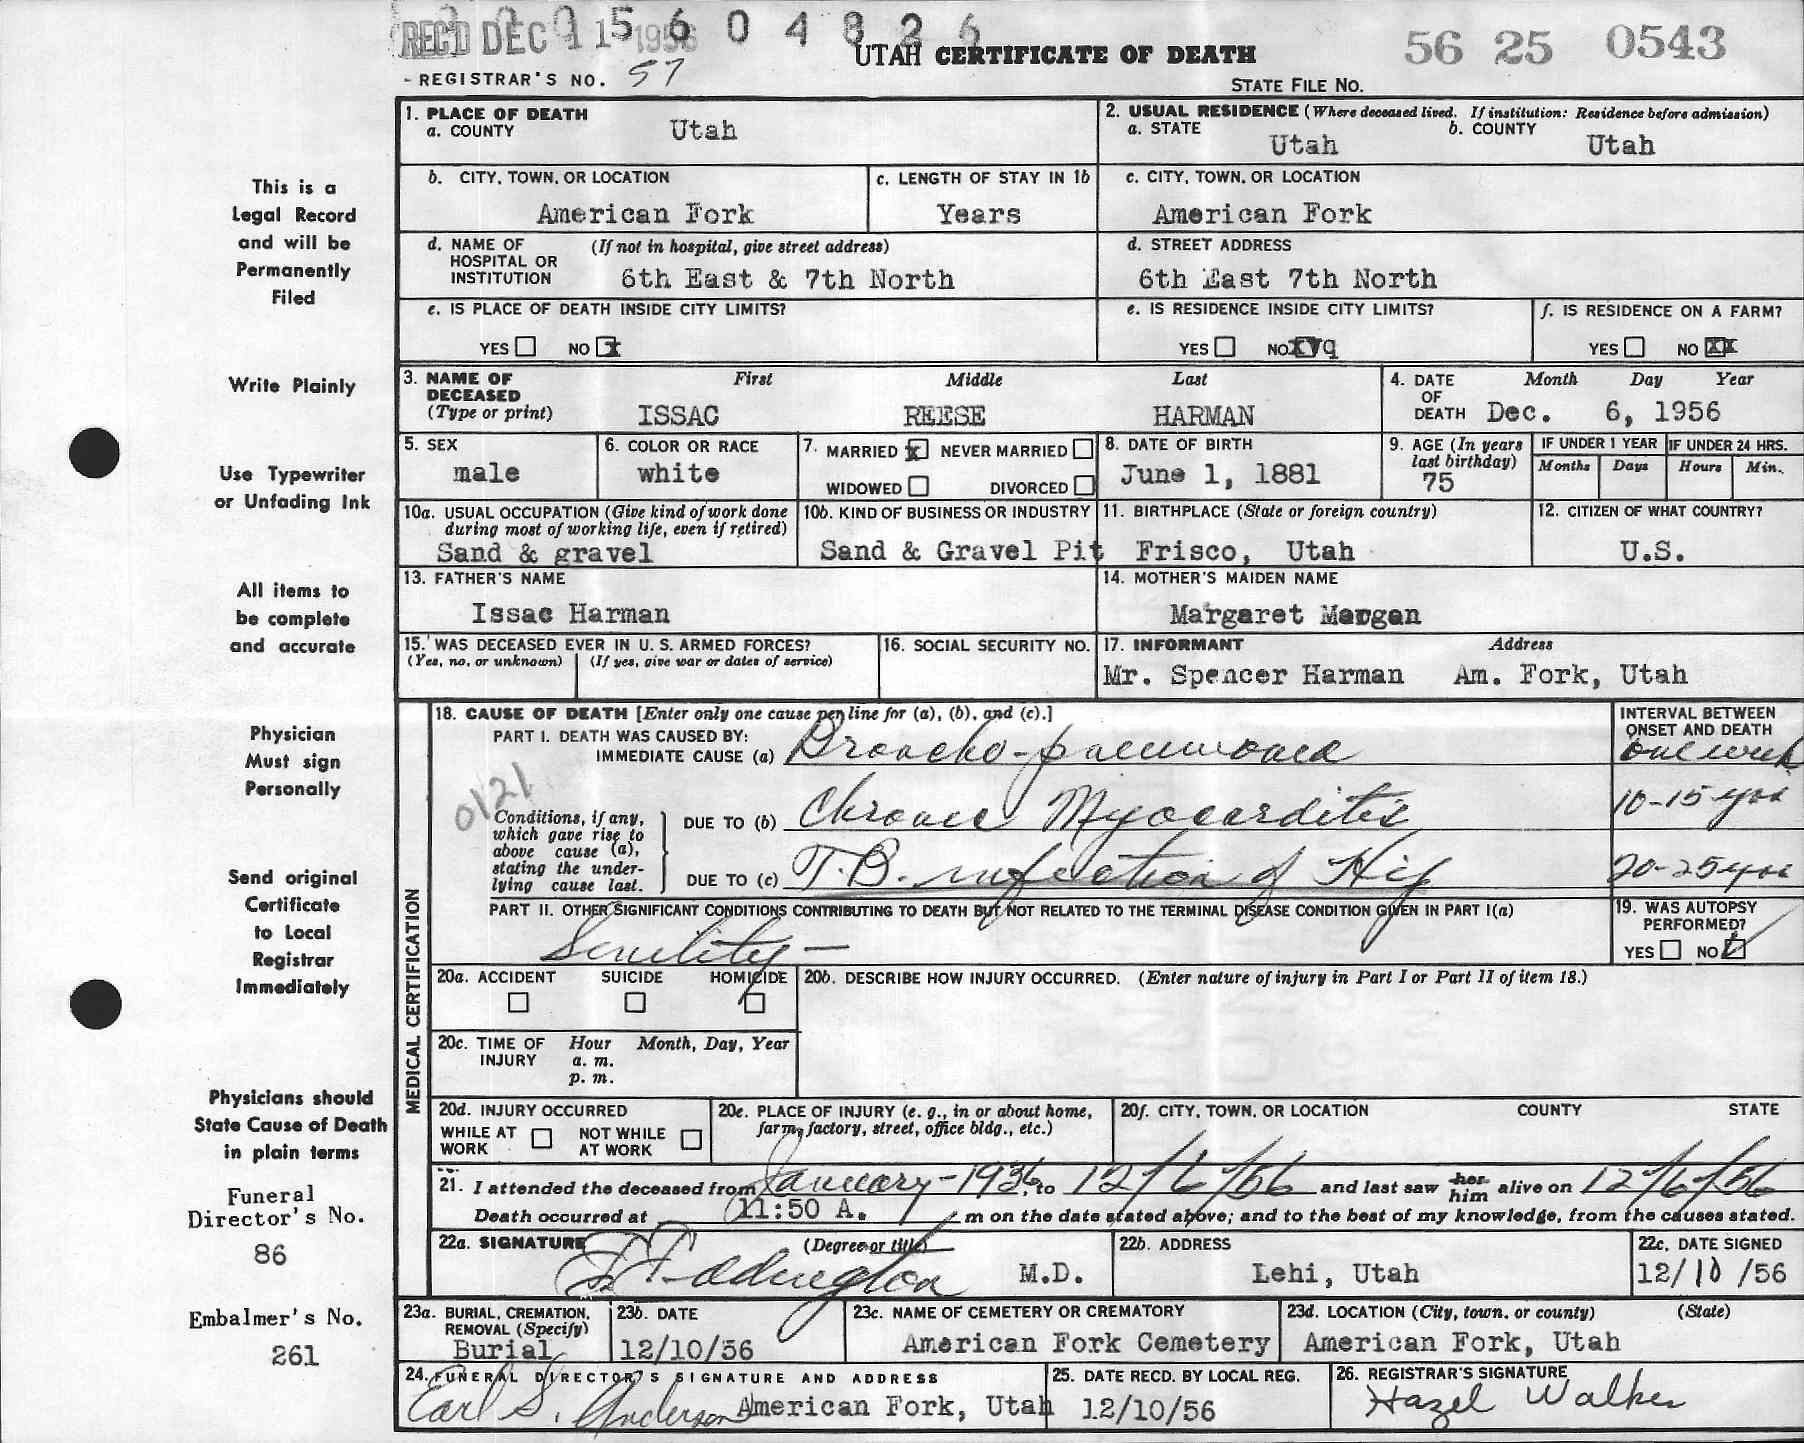 REC'D DEC 11 1956
5 6 0 4 8 2 6
UTAH CERTIFICATE OF DEATH
56 25 0543
- REGISTRAR'S NO. 57
STATE FILE NO.
This is a
Legal Record
and will be
Permanently
Filed
Write Plainly
Use Typewriter
or Unfading Ink
All items to
be complete
and accurate
Physician
Must sign
Personally
Send original
Certificate
to Local
Registrar
Immediately
Physicians should
State Cause of Death
in plain terms
Funeral
Director's No.
86
Embalmer's No.
261
1. PLACE OF DEATH
a. COUNTY Utah
2. USUAL RESIDENCE (Where deceased lived. If institution: Residence before admission)
a. STATE Utah b. COUNTY Utah
b. CITY, TOWN, OR LOCATION
American Fork
c. LENGTH OF STAY IN 1b
Years
c. CITY, TOWN, OR LOCATION
American Fork
d. NAME OF HOSPITAL OR INSTITUTION (If not in hospital, give street address)
6th East & 7th North
d. STREET ADDRESS
6th East 7th North
e. IS PLACE OF DEATH INSIDE CITY LIMITS?
YES NO x
e. IS RESIDENCE INSIDE CITY LIMITS?
YES NO
f. IS RESIDENCE ON A FARM?
YES NO xx
3. NAME OF DECEASED (Type or print)
First Middle Last
ISSAC REESE HARMAN
4. DATE OF DEATH Month Day Year
Dec. 6, 1956
5. SEX
male
6. COLOR OR RACE
white
7. MARRIED x NEVER MARRIED
WIDOWED DIVORCED
8. DATE OF BIRTH
June 1, 1881
9. AGE (In years last birthday)
75
IF UNDER 1 YEAR
Months Days
IF UNDER 24 HRS.
Hours Min.
10a. USUAL OCCUPATION (Give kind of work done during most of working life, even if retired)
Sand & gravel
10b. KIND OF BUSINESS OR INDUSTRY
Sand & Gravel Pit
11. BIRTHPLACE (State or foreign country)
Frisco, Utah
12. CITIZEN OF WHAT COUNTRY?
U.S.
13. FATHER'S NAME
Issac Harman
14. MOTHER'S MAIDEN NAME
Margaret Morgan
15. WAS DECEASED EVER IN U. S. ARMED FORCES?
(Yes, no, or unknown) (If yes, give war or dates of service)
16. SOCIAL SECURITY NO.
17. INFORMANT Address
Mr. Spencer Harman Am. Fork, Utah
MEDICAL CERTIFICATION
18. CAUSE OF DEATH [Enter only one cause per line for (a), (b), and (c).]
PART I. DEATH WAS CAUSED BY:
IMMEDIATE CAUSE (a) Broncho-pneumonia
INTERVAL BETWEEN ONSET AND DEATH
one week
0121
Conditions, if any, which gave rise to above cause (a), stating the underlying cause last.
DUE TO (b) Chronic Myocarditis
10-15 yrs
DUE TO (c) T.B. infection of Hip
20-25 yrs
PART II. OTHER SIGNIFICANT CONDITIONS CONTRIBUTING TO DEATH BUT NOT RELATED TO THE TERMINAL DISEASE CONDITION GIVEN IN PART I(a)
Senility —
19. WAS AUTOPSY PERFORMED?
YES NO ✓
20a. ACCIDENT SUICIDE HOMICIDE
20b. DESCRIBE HOW INJURY OCCURRED. (Enter nature of injury in Part I or Part II of item 18.)
20c. TIME OF INJURY Hour Month, Day, Year
a. m.
p. m.
20d. INJURY OCCURRED
WHILE AT WORK NOT WHILE AT WORK
20e. PLACE OF INJURY (e. g., in or about home, farm, factory, street, office bldg., etc.)
20f. CITY, TOWN, OR LOCATION COUNTY STATE
21. I attended the deceased from January-1936, to 12/6/56 and last saw her him alive on 12/6/56
Death occurred at 11:50 A. m on the date stated above; and to the best of my knowledge, from the causes stated.
22a. SIGNATURE (Degree or title)
Eddington M.D.
22b. ADDRESS
Lehi, Utah
22c. DATE SIGNED
12/10/56
23a. BURIAL, CREMATION, REMOVAL (Specify)
Burial
23b. DATE
12/10/56
23c. NAME OF CEMETERY OR CREMATORY
American Fork Cemetery
23d. LOCATION (City, town, or county) (State)
American Fork, Utah
24. FUNERAL DIRECTOR'S SIGNATURE AND ADDRESS
Earl S. Anderson American Fork, Utah
25. DATE RECD. BY LOCAL REG.
12/10/56
26. REGISTRAR'S SIGNATURE
Hazel Walker